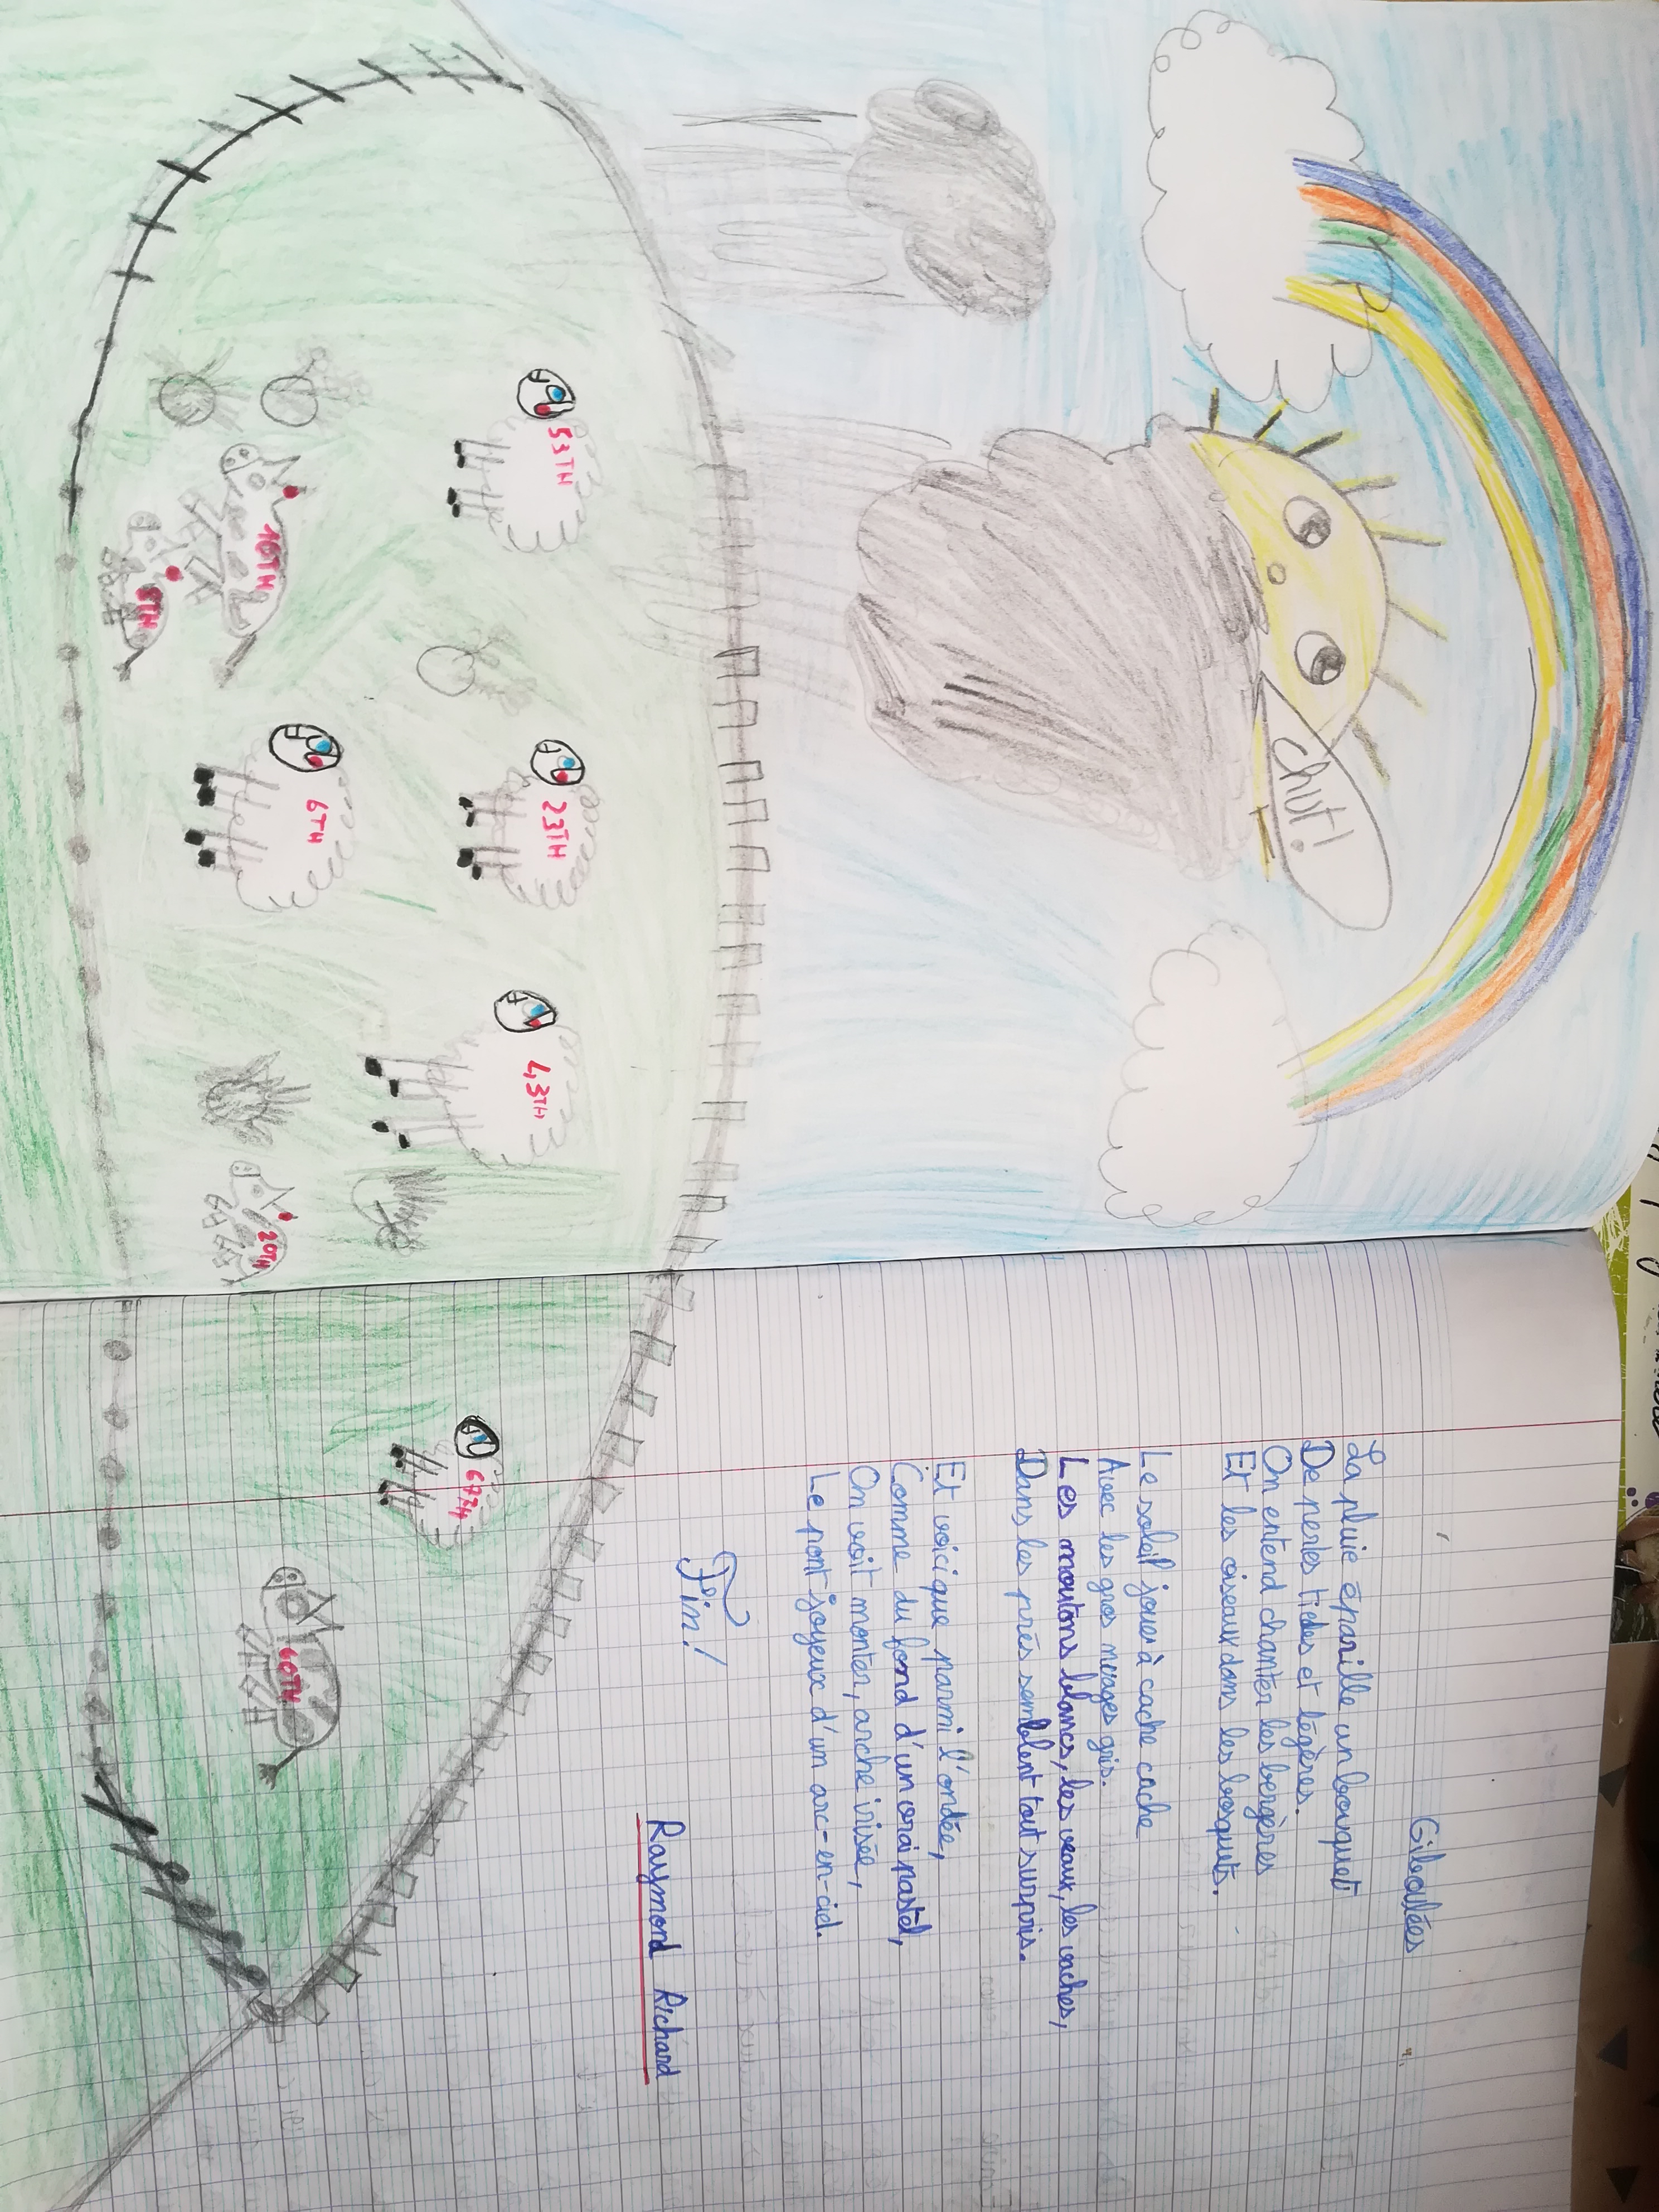 chut!
53TH
10TH
5TH
23TH
6TH
43TH
20TH
Giboulées
La pluie éparille un bouquet
De perles tiedes et légères.
On entend chanter les bergères
Et les oiseaux dans les bosquets.
Le soleil joue à cache cache
Avec les gros nuages gris.
Les moutons blancs, les veaux, les vaches,
Dans les près semblent tout surpris.
Et voici que parmi l'ondée,
Comme du fond d'un vrai pastel,
On voit monter, arche irisée,
Le pont joyeux d'un arc-en-ciel.
Fin!
Raymond Richard
60TH